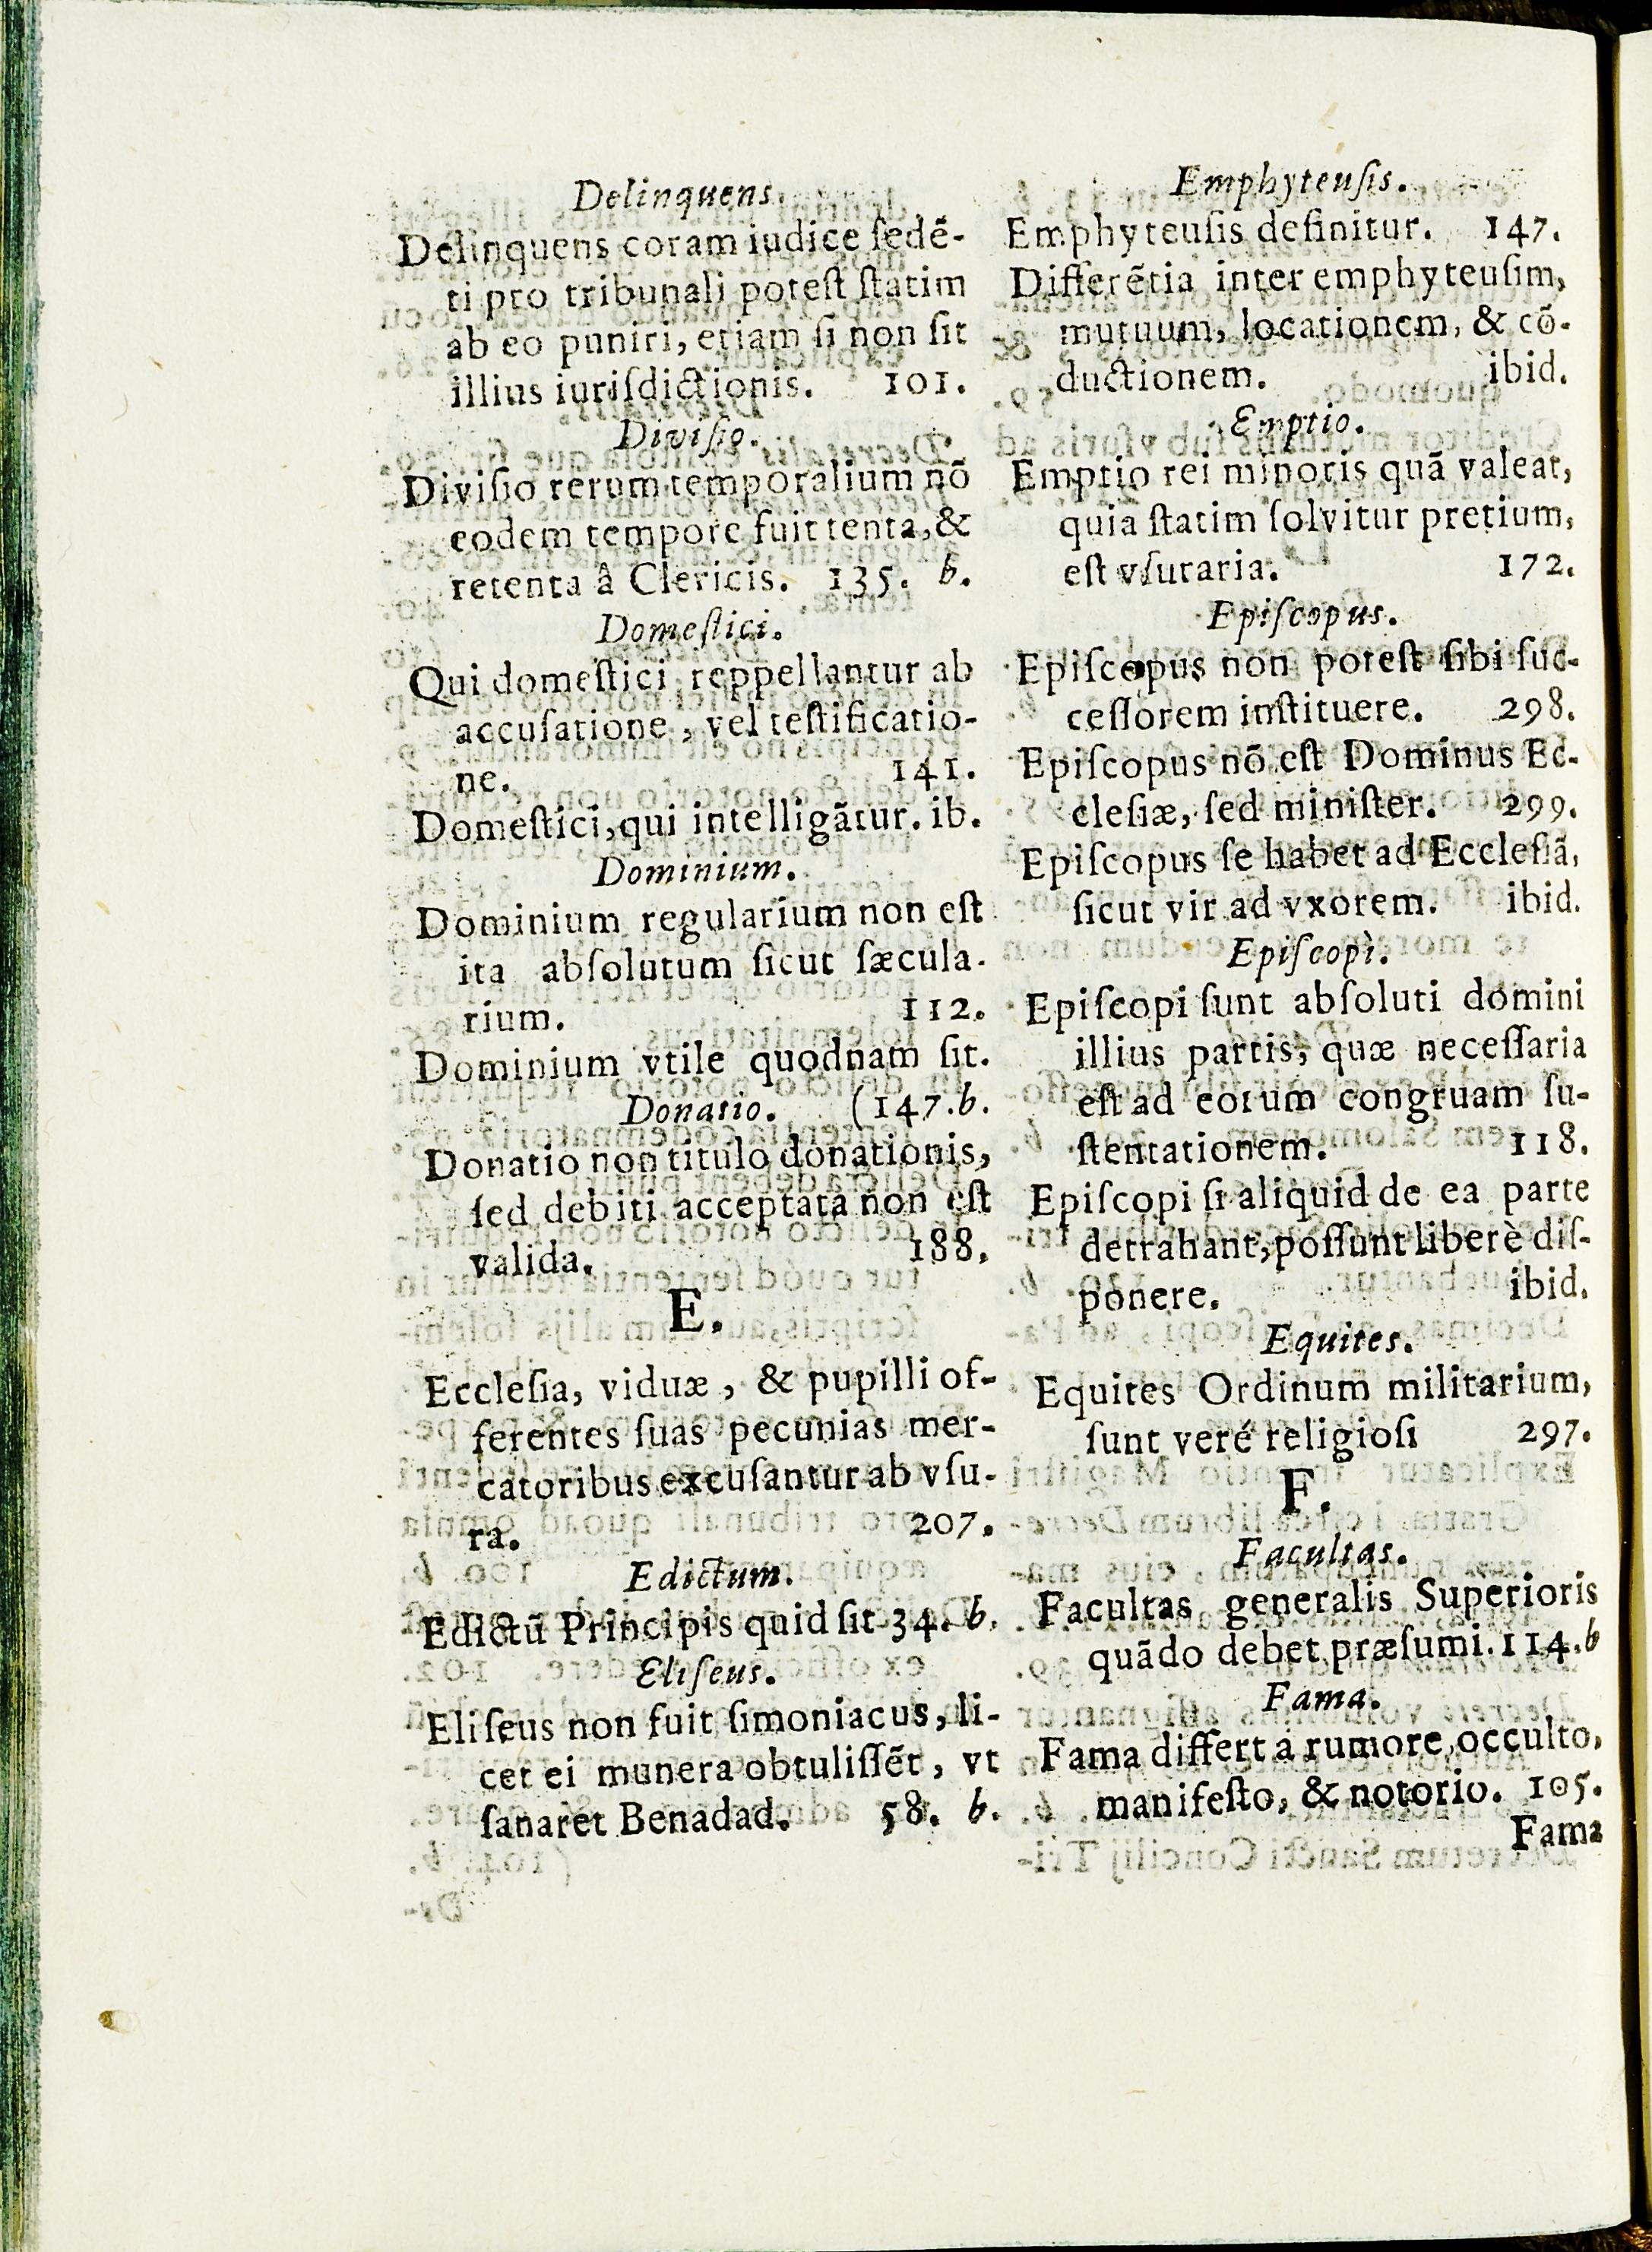 Delinquens.
Delinquens coram iudice ſedẽ-
ti pro tribunali poteſt ſtatim
ab eo puniri, etiam ſi non ſit
illius iuriſdictionis. 101.
Diviſio.
Diviſio rerum temporalium nõ
eodem tempore fuit tenta, &
retenta â Clericis. 135. b.
Domeſtici.
Qui domeſtici reppellantur ab
accuſatione, vel teſtificatio-
ne. 141.
Domeſtici, qui intelligãtur. ib.
Dominium.
Dominium regularium non eſt
ita abſolutum ſicut ſæcula-
rium. 112.
Dominium vtile quodnam ſit.
Donatio. (147.b.
Donatio non titulo donationis,
ſed debiti acceptata non eſt
valida. 188.
E.
Eccleſia, viduæ, & pupilli of-
ferentes ſuas pecunias mer-
catoribus excuſantur ab vſu-
ra. 207.
Edictum.
Edictũ Principis quid ſit 34. b.
Eliſeus.
Eliſeus non fuit ſimoniacus, li-
cet ei munera obtuliſſẽt, vt
ſanaret Benadad. 58. b.
Emphyteuſis.
Emphyteuſis definitur. 147.
Differẽtia inter emphyteuſim,
mutuum, locationem, & cõ-
ductionem. ibid.
Emptio.
Emptio rei minoris quã valeat,
quia ſtatim ſolvitur pretium,
eſt vſuraria. 172.
Epiſcopus.
Epiſcopus non poteſt ſibi ſuc-
ceſſorem inſtituere. 298.
Epiſcopus nõ eſt Dominus Ec-
cleſiæ, ſed miniſter. 299.
Epiſcopus ſe habet ad Eccleſiã,
ſicut vir ad vxorem. ibid.
Epiſcopi.
Epiſcopi ſunt abſoluti domini
illius partis, quæ neceſſaria
eſt ad eorum congruam ſu-
ſtentationem. 118.
Epiſcopi ſi aliquid de ea parte
detrahant, poſſunt liberè diſ-
ponere. ibid.
Equites.
Equites Ordinum militarium,
ſunt veré religioſi 297.
F.
Facultas.
Facultas generalis Superioris
quãdo debet præſumi. 114.b
Fama.
Fama differt a rumore, occulto,
manifeſto, & notorio. 105.
Fama